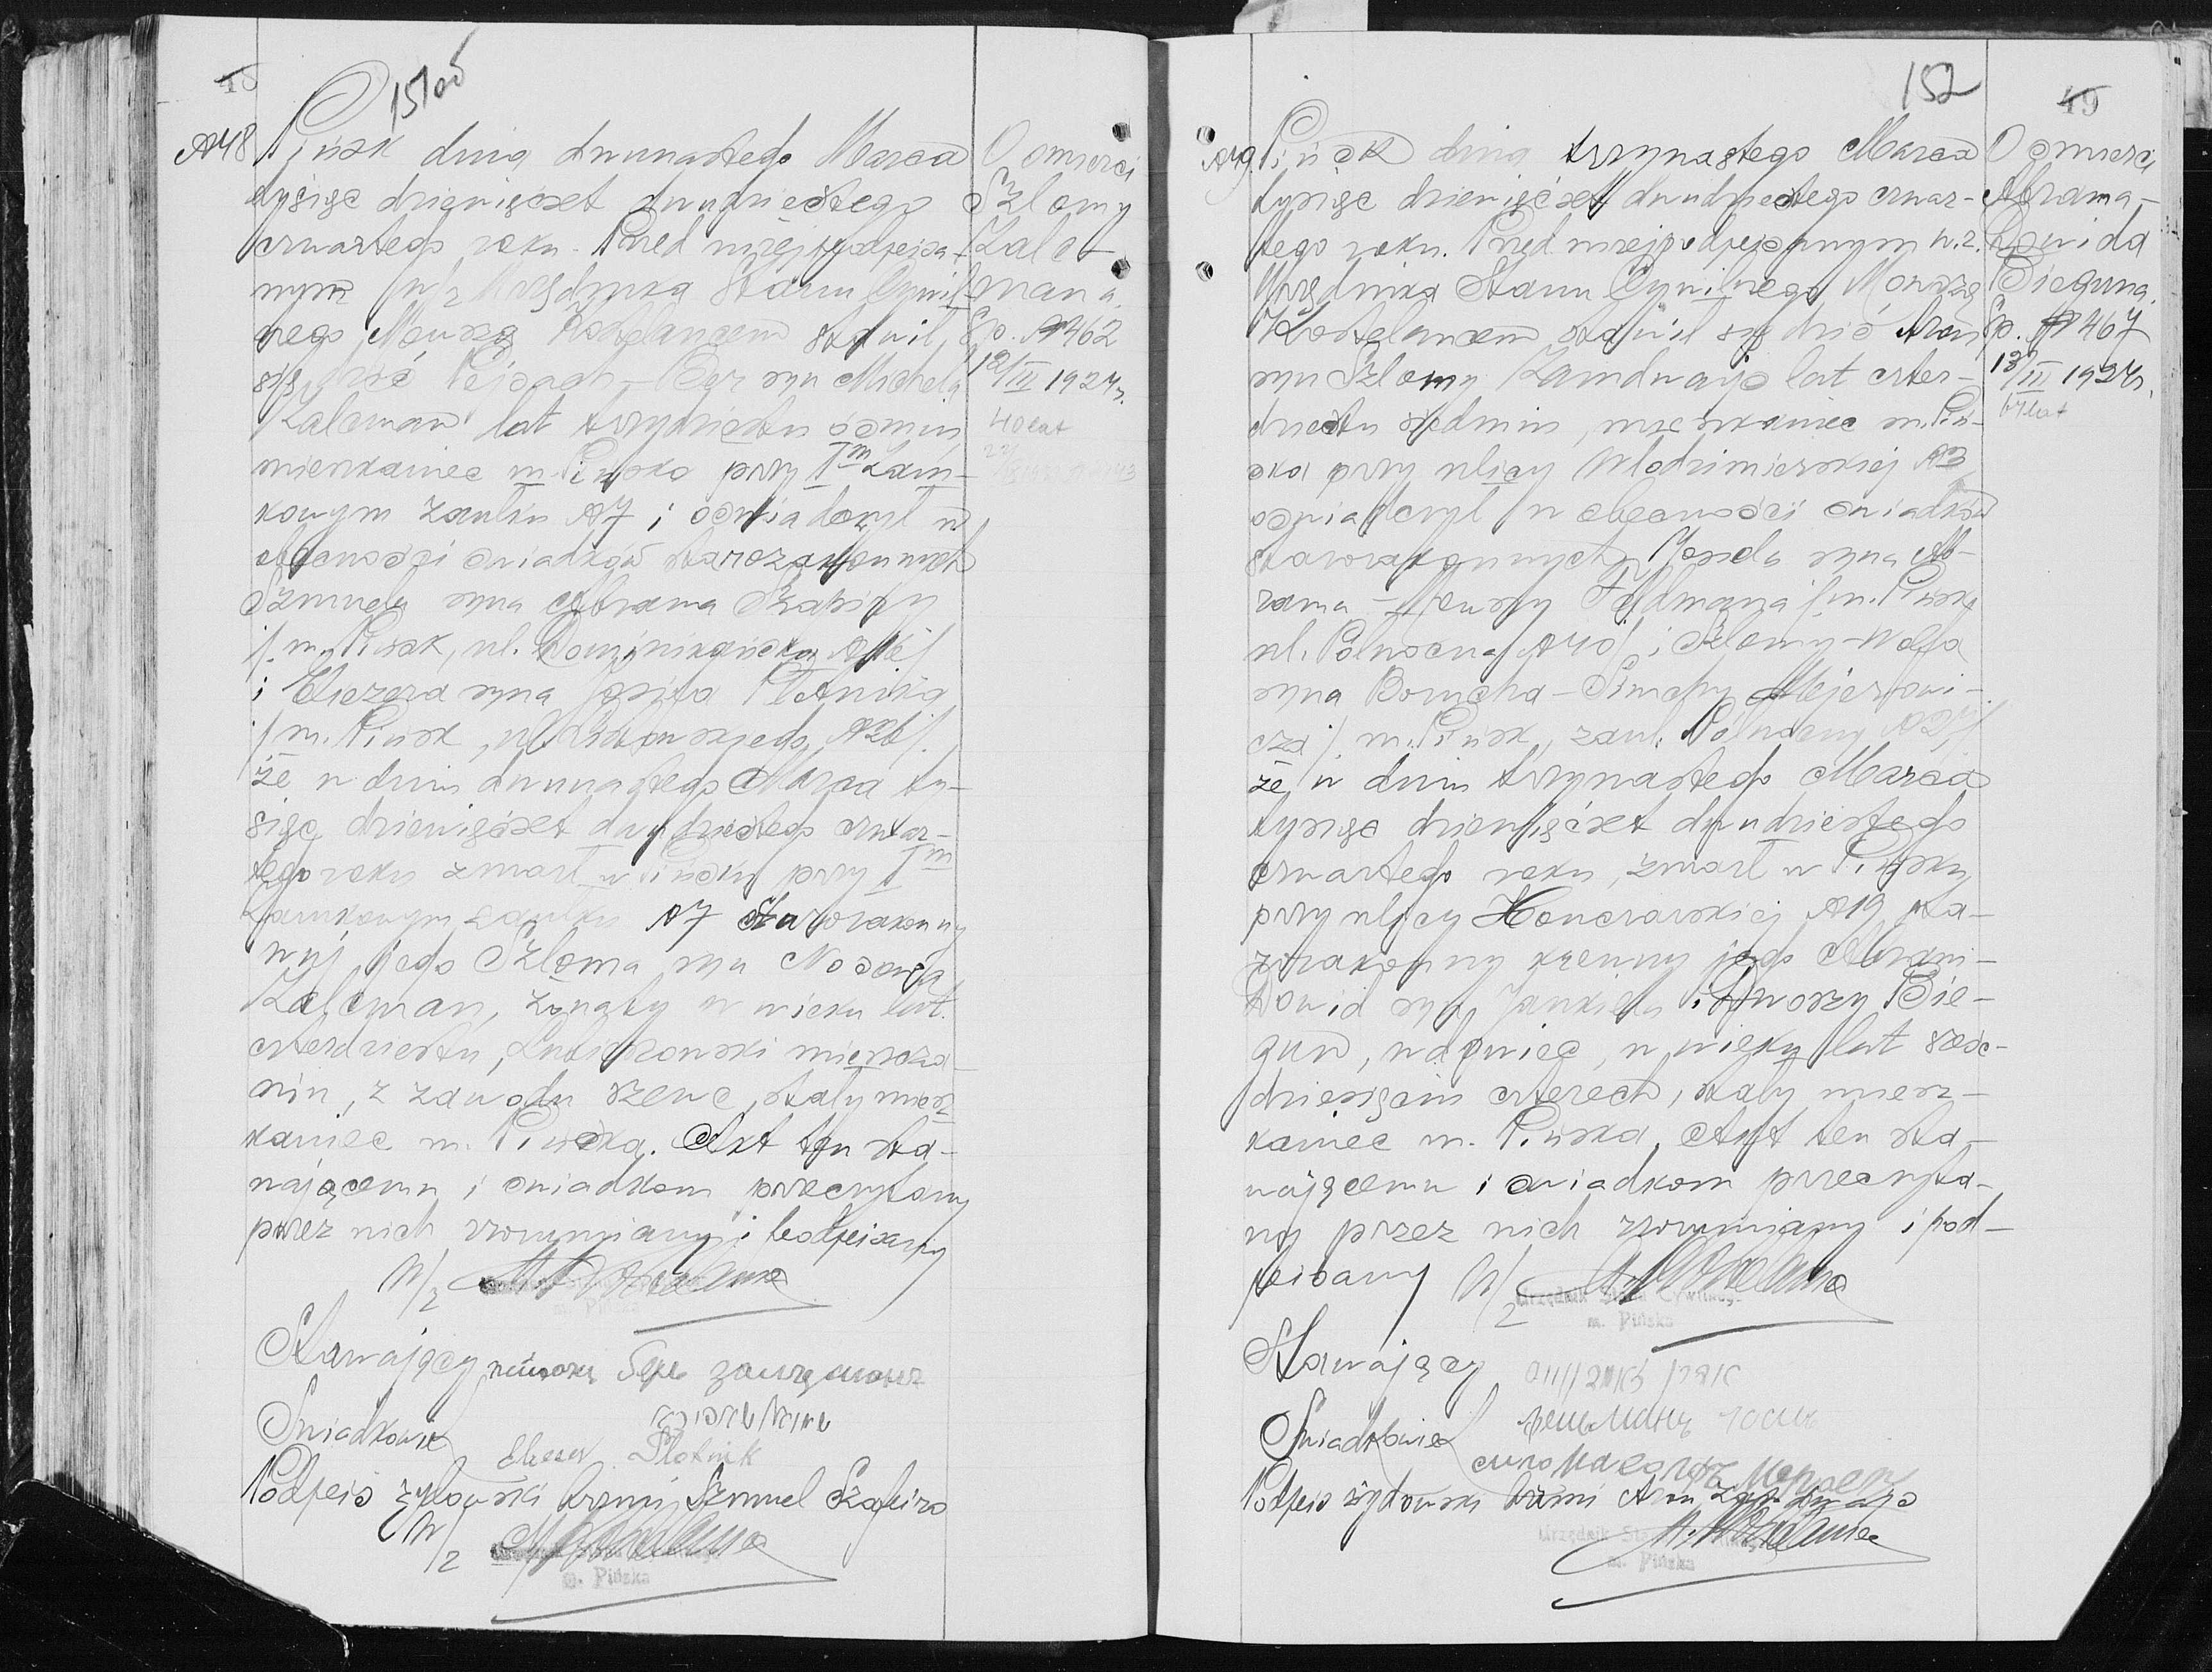 48
151об
№48
Pińsk dnia dwunastego Marca
tysiąc dziewięćset dwudziestego
czwartego roku. Przed niżej podpisa-
nym w/z Urzędnika Stanu Cywil-
nego Mowszą Kostelańcem stawił
się dziś Pejsach-Ber syn Michela
Zalcman lat trzydziestu ośmiu
mieszkaniec m. Pińska przy I m Zam-
kowym zaułku №7 i oświadczył w
obecności świadków starozakonnych
Szmuela syna Abrama Szapiry
/m. Pińsk, ul. Dominikańska
i Eliezera syna Josifa Płotnika
/m. Pińsk, ul.
że w dniu dwunastego Marca ty-
siąc dziewięćset dwudziestego czwar-
tego roku zmarł w Pińsku przy I m
Zamkowym zaułku №7 starozakonny
wuj jego Szloma syn Nosona
Zalcman, żonaty w wieku lat
czterdziestu, Lubieszowski mieszcza-
nin, z zawodu szewc, stały miesz-
kaniec m. Pińska. Akt ten sta-
wającemu i świadkom przeczytany
przez nich zrozumiany i podpisany
w/z
m. Pińska
Stawający Зальцманъ
Świadkowie
Elieser Płotnik
Podpis żydowski brzmi Szmuel Szapiro
w/z
m. Pińska
O śmierci
Szlomy
Zalc-
mana.
Sp. №462
12/III 1924r.
40 lat
152
49
№49.
Pińsk dnia trzynastego Marca
tysiąc dziewięćset dwudziestego czwar-
tego roku. Przed niżej podpisanym w.z.
Urzędnika Stanu Cywilnego Mowszą
Kostelańcem stawił się dziś Aron
syn Szlomy Zamdwajs lat czter-
dziestu siedmiu, mieszkaniec m. Piń-
ska przy ulicy Włodzimierskiej №3
oświadczył w obecności świadków
starozakonnych Josela syna Ab-
rama-Mowszy Feldmana /m. Pińsk
ul. Północna №10/ i Szlomy-Wolfa
syna Borucha-Simchy Mejerowi-
cza /m. Pińsk, zauł. Północny
że w dniu trzynastego Marca
tysiąc dziewięćset dwudziestego
czwartego roku, zmarł w Pińsku
przy ulicy Honczarskiej №19 sta-
rozakonny krewny jego Abram-
Dowid syn Jankiela i Dworzy Bie-
gun, wdowiec, w wieku lat sześć-
dziesięciu czterech, stały miesz-
kaniec m. Pińska. Akt ten sta-
wającemu i świadkom przeczyta-
ny przez nich zrozumiany i pod-
pisany w/z
Urzędnik Stanu Cywilnego
m. Pińska
Stawający
Świadkowie
Podpis żydowski brzmi Aron Zamdwajs
Urzędnik Stanu
m. Pińska
O śmierci
Abrama-
Dowida
Bieguna.
Sp. №467
13/III 1924r.
64 lat